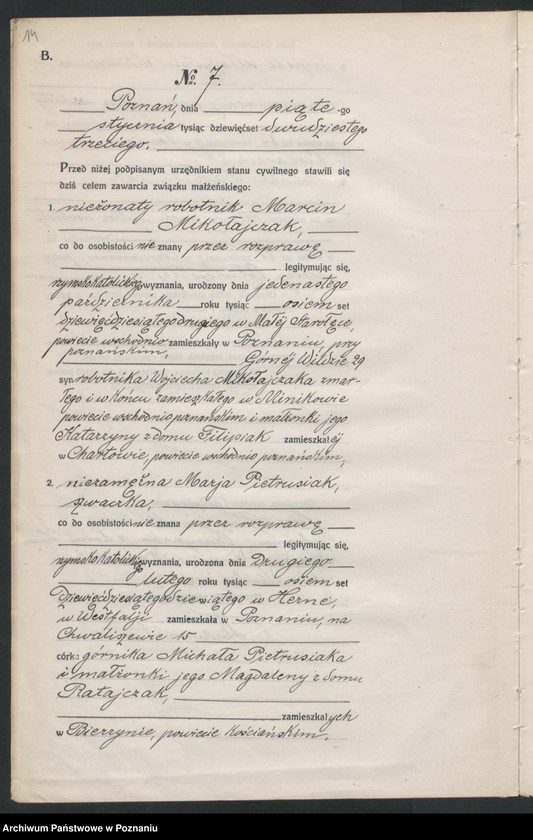 14
B.
№ 7.
Poznań, dnia piąte -go
stycznia tysiąc dziewięćset dwudziestego
trzeciego.
Przed niżej podpisanym urzędnikiem stanu cywilnego stawili się
dziś celem zawarcia związku małżeńskiego:
1. nieżonaty robotnik Marcin
Mikołajczak,
co do osobistości nie znany przez rozprawę
legitymując się,
rzymskokatolickiego wyznania, urodzony dnia jedenastego
października roku tysiąc osiem set
dziewięćdziesiątego drugiego w Małej Starołęce,
powiecie wschodnio zamieszkały w Poznaniu, przy
poznańskim, Górnej Wildzie 29
syn robotnika Wojciecha Mikołajczaka zmar-
łego i w końcu zamieszkałego w Minikowie
powiecie wschodnio poznańskim i małżonki jego
Katarzyny z domu Filipiak zamieszkałej
w Chartowie, powiecie wschodnio poznańskim,
2. niezamężna Marja Pietrusiak,
szwaczka,
co do osobistości nie znana przez rozprawę
legitymując się,
rzymskokatolickiego wyznania, urodzona dnia drugiego
lutego roku tysiąc osiem set
dziewięćdziesiątego dziewiątego w Herne,
w Westfalji zamieszkała w Poznaniu, na
Chwaliszewie 15
córka górnika Michała Pietrusiaka
i małżonki jego Magdaleny z domu
Ratajczak,
zamieszkałych
w Bierzynie, powiecie Kościańskim.
Archiwum Państwowe w Poznaniu